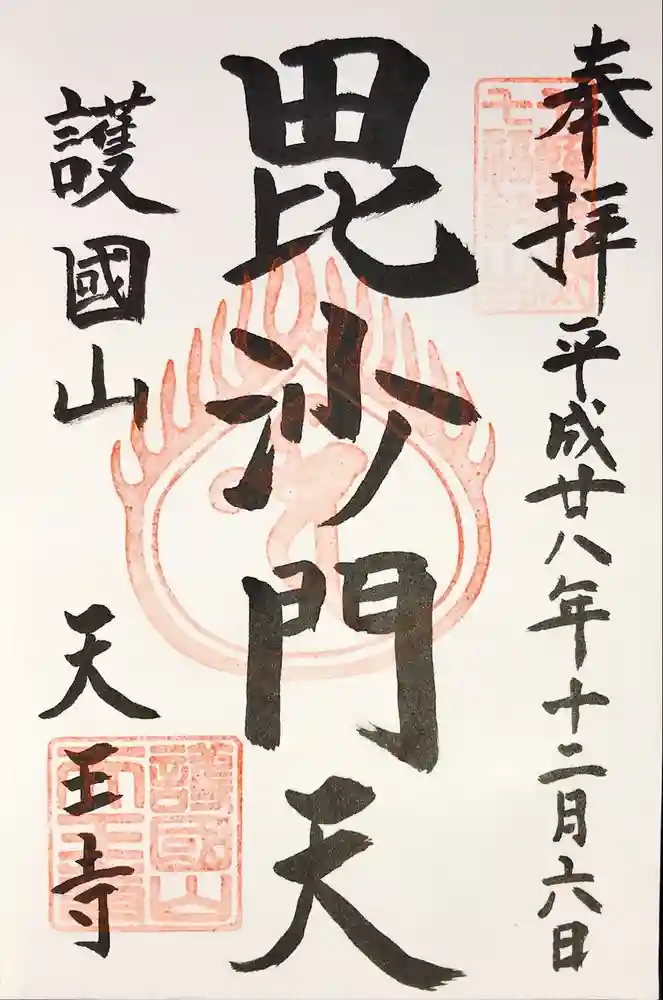 奉拝
平成廿八年十二月六日
毘沙門天
護國山
天王寺
護國山
天王寺